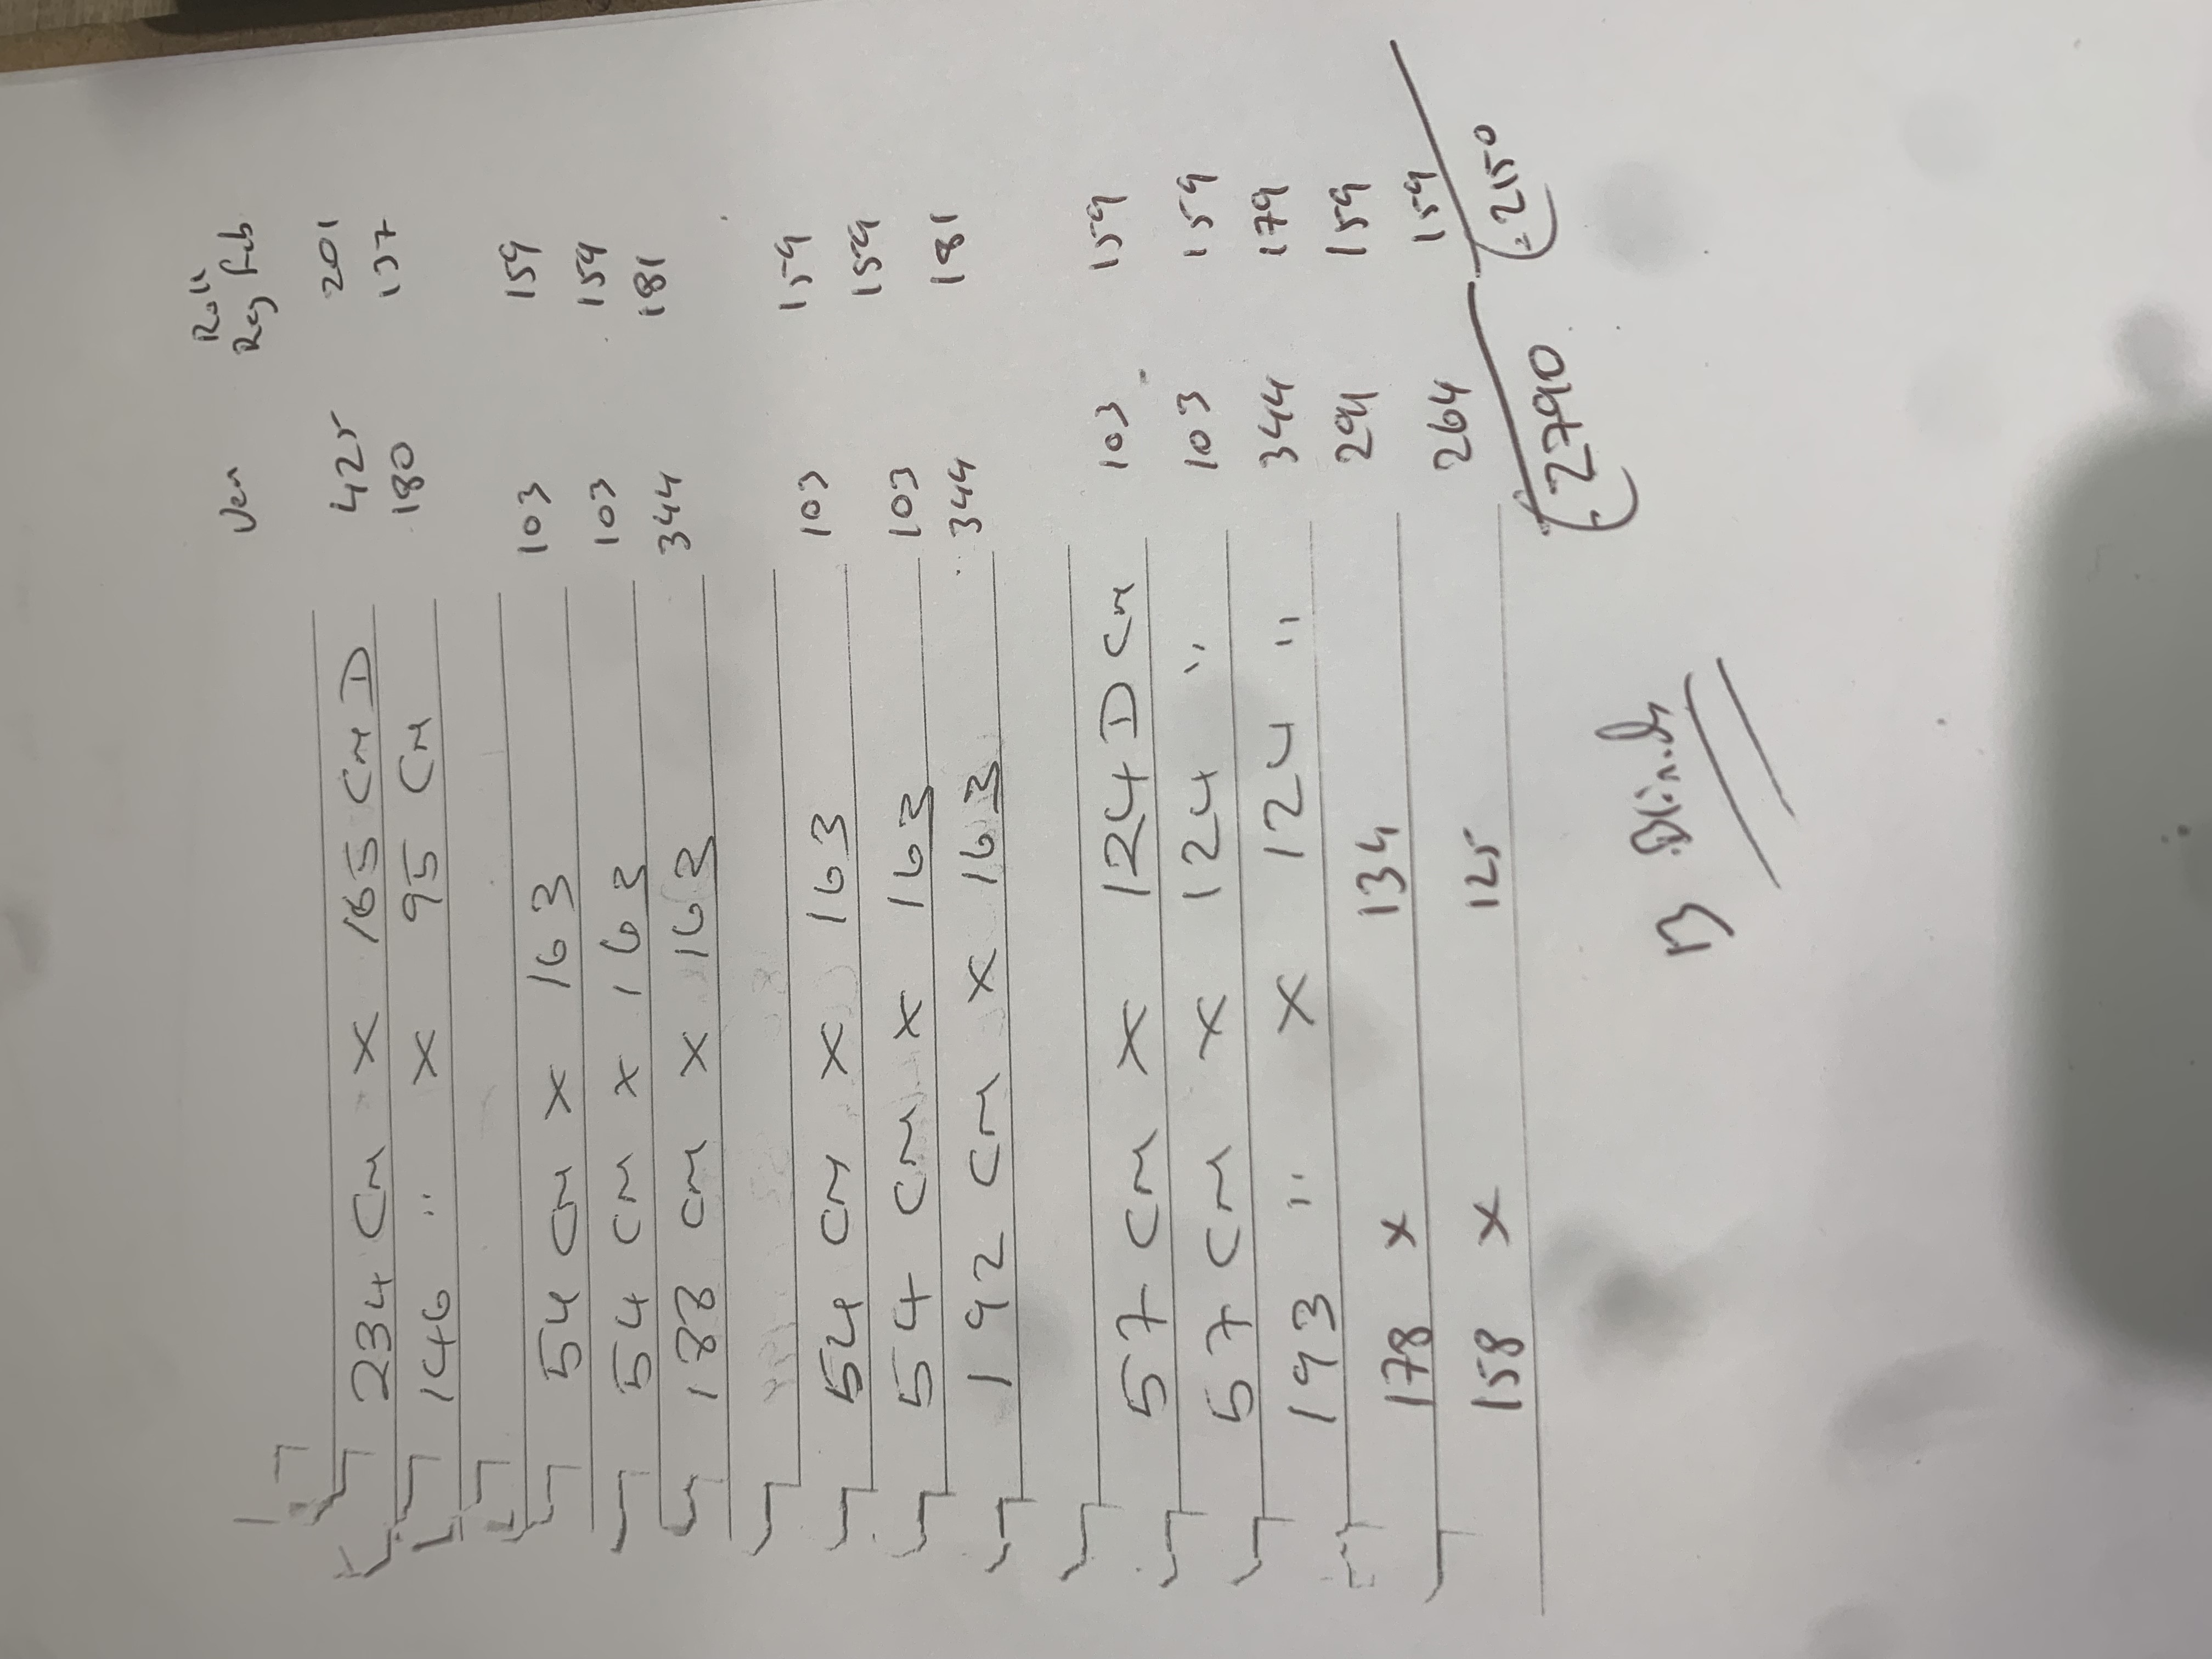 Ven Roll
Reg Fab
234 CM X 165 CM D 425 201
146 " X 95 CM 180 137
54 CM X 163 103 159
54 CM X 163 103 159
188 CM X 163 344 181
54 CM X 163 103 159
54 CM X 163 103 159
192 CM X 163 344 181
57 CM X 124 D CM 103 159
57 CM X 124 " 103 159
193 " X 124 " 344 179
178 X 134 291 159
158 X 125 264 159
2790 2150
13 Blinds